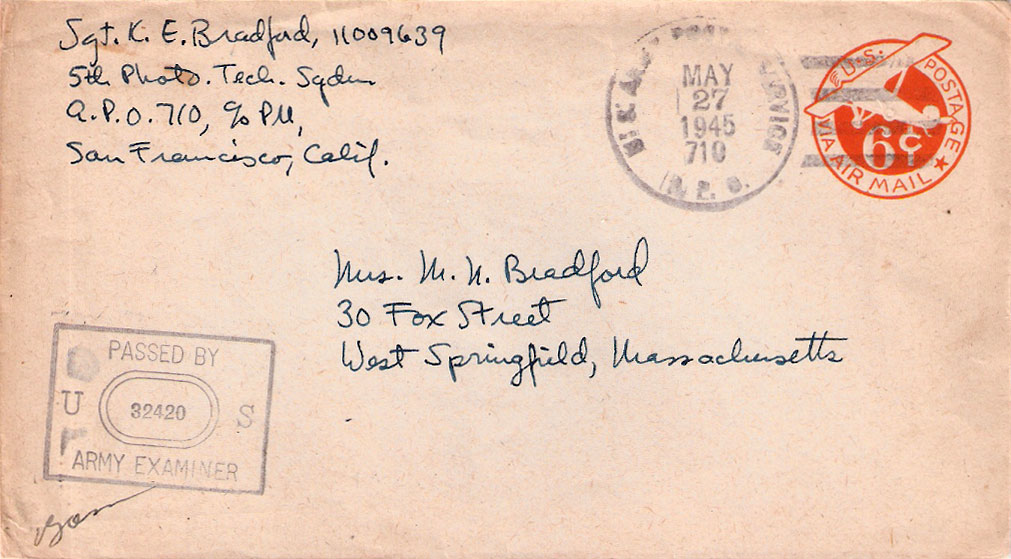 Sgt. K. E. Bradford, 11009639
5th Photo. Tech. Sqdn
A.P.O. 710, c/o PM,
San Francisco, Calif.
U.S. ARMY POSTAL SERVICE
MAY
27
1945
710
A. P. O.
U.S. POSTAGE
6¢
VIA AIR MAIL
Mrs. M. N. Bradford
30 Fox Street
West Springfield, Massachusetts
PASSED BY
U 32420 S
ARMY EXAMINER